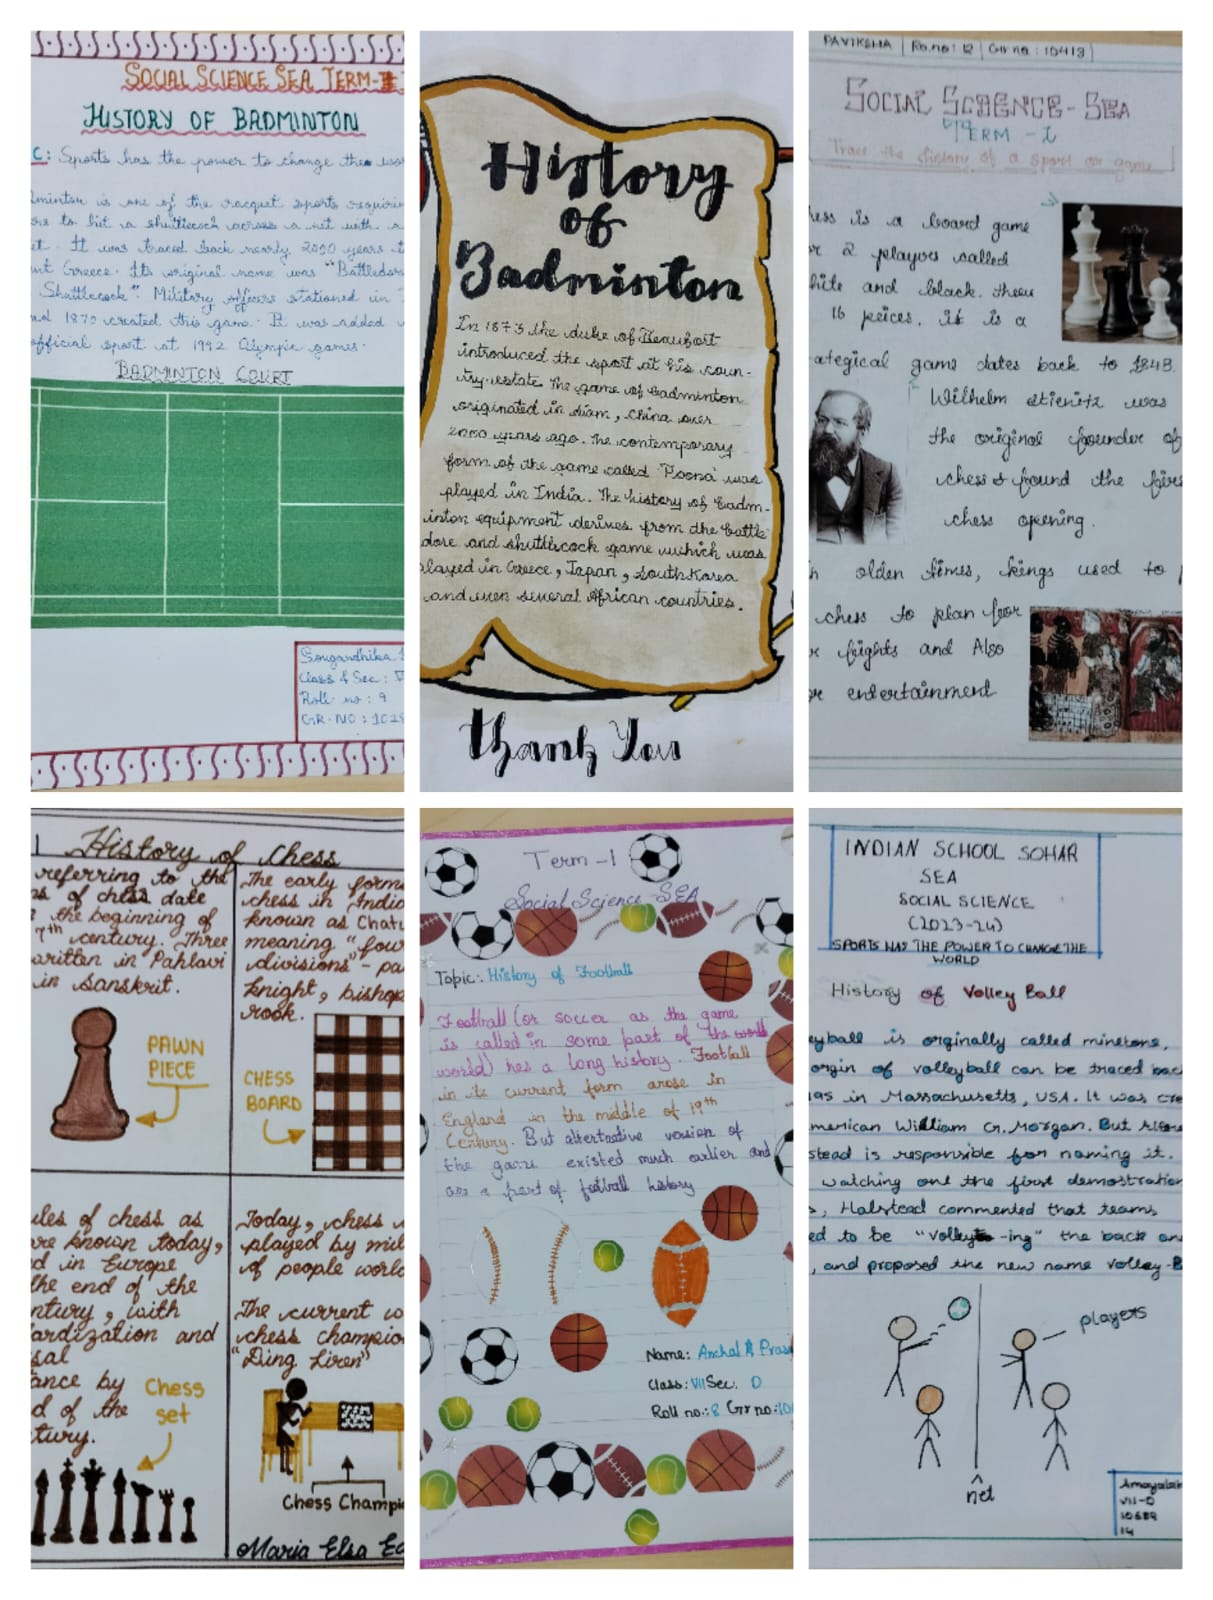 SOCIAL SCIENCE SEA TERM-I
HISTORY OF BADMINTON
C: Sports has the power to change the wo
dminton is one of the racquet sports requirin
re to hit a shuttlecock across a net with a
et. It was traced back nearly 2000 years t
nt Greece. Its original name was "Battledor
Shuttlecock". Military officers stationed in
nd 1870 created this game. It was added
official sport at 1992 Olympic games.
BADMINTON COURT
Sougandhika
Class & Sec: V
Roll no: 9
GR.NO: 102
History
of
Badminton
In 1873 the duke of Beaufort
introduced the sport at his coun-
try estate. The game of badminton
originated in siam, china over
2000 years ago. The contemporary
form of the game called 'Poona' was
played in India. The history of Badm-
inton equipment derives from the battle
dore and shuttlecock game which was
played in Greece, Japan, South Korea
and even several African countries.
Thank You
PAVIKSHA | Ro.no: 12 | Gr no: 10413
SOCIAL SCIENCE - SEA
TERM - I
Trace the history of a sport or game
ess is a board game
r 2 players called
hite and black. there
16 peices. it is a
ategical game dates back to 1843.
Wilhelm stienitz was
the original founder of
chess & found the firs
chess opening.
n olden times, kings used to
chess to plan for
r fights and Also
r entertainment
History of Chess
referring to the
s of chess date
the beginning of
7th century. Three
written in Pahlavi
in Sanskrit.
PAWN
PIECE
The early form
chess in India
known as Chatu
meaning "four
divisions" - pa
knight, bishop
rook.
CHESS
BOARD
ules of chess as
are known today,
d in Europe
the end of the
ntury, with
ardization and
sal
tance by
d of the
tury.
Chess
set
Today, chess
played by mil
of people world
The current wo
chess champio
"Ding Liren"
Chess Champi
Maria Elsa Ed
Term - I
Social Science - SEA
Topic: History of Football
Football (or soccer as the game
is called in some part of the world
world) has a long history. Football
in its current form arose in
England in the middle of 19th
Century. But alternative version of
the game existed much earlier and
are a part of football history
Name: Anchal A Pras
Class: VII Sec: D
Roll no.: 8 Gr no: 10
INDIAN SCHOOL SOHAR
SEA
SOCIAL SCIENCE
(2023-24)
SPORTS HAS THE POWER TO CHANGE THE
WORLD
History of Volley Ball
eyball is orginally called minetone,
orgin of volleyball can be traced bac
as in Massachusetts, USA. It was cre
merican William G. Morgan. But
stead is responsible for naming it.
watching out the first demostration
s, Halstead commented that teams
ed to be "volley-ing" the back an
, and proposed the new name Volley-B
players
net
VII-D
10689
14